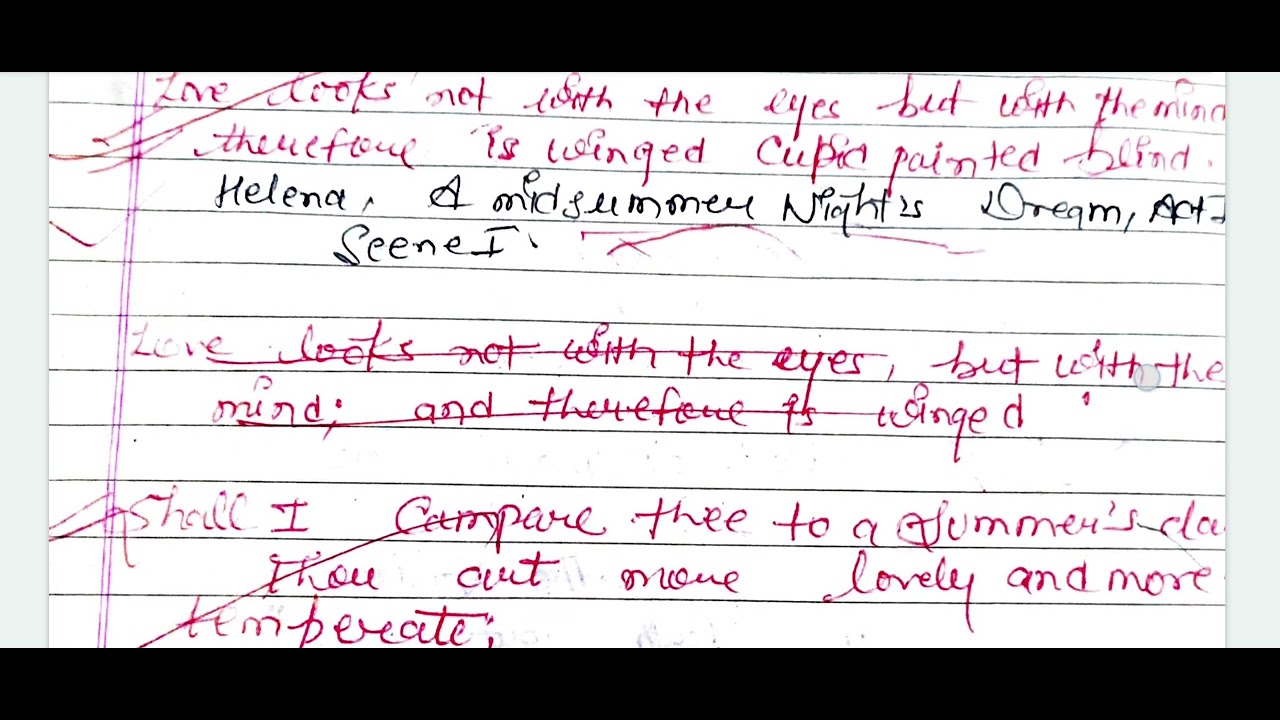 Love looks not with the eyes but with the mind
therefore is winged Cupid painted blind.
Helena, A midsummer Night's Dream, Act I
Seene I.
Love looks not with the eyes, but with the
mind; and therefore is winged
Shall I Compare thee to a Summer's da
Thou art more lovely and more
temperate;